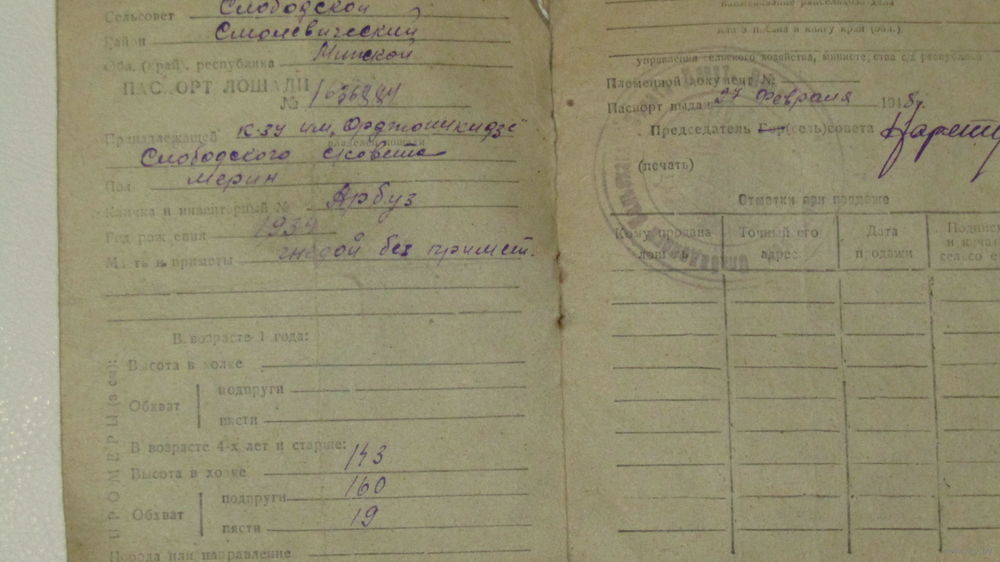 Сельсовет Слободской
Район Смолевический
Обл. (край), республика Минской
ПАСПОРТ ЛОШАДИ
№
Принадлежащей к-зу им. Орджоникидзе
владелец лошади
Слободского с/совета
Пол мерин
Кличка и инвентарный № Арбуз
Год рождения 1934
Масть и приметы гнедой без примет.
В возрасте 1 года:
Высота в холке
Обхват
подпруги
пясти
ПРОМЕРЫ (в см):
В возрасте 4-х лет и старше:
Высота в холке 143
Обхват
подпруги 160
пясти 19
Порода или направление
наименование
управления сельского хозяйства, министерства с/х республики
Племенной документ №
Паспорт выдан 27 февраля 1948г.
Председатель Гор(сель)совета
(печать)
Отметки при продаже
Кому продана лошадь
Точный его адрес
Дата продажи